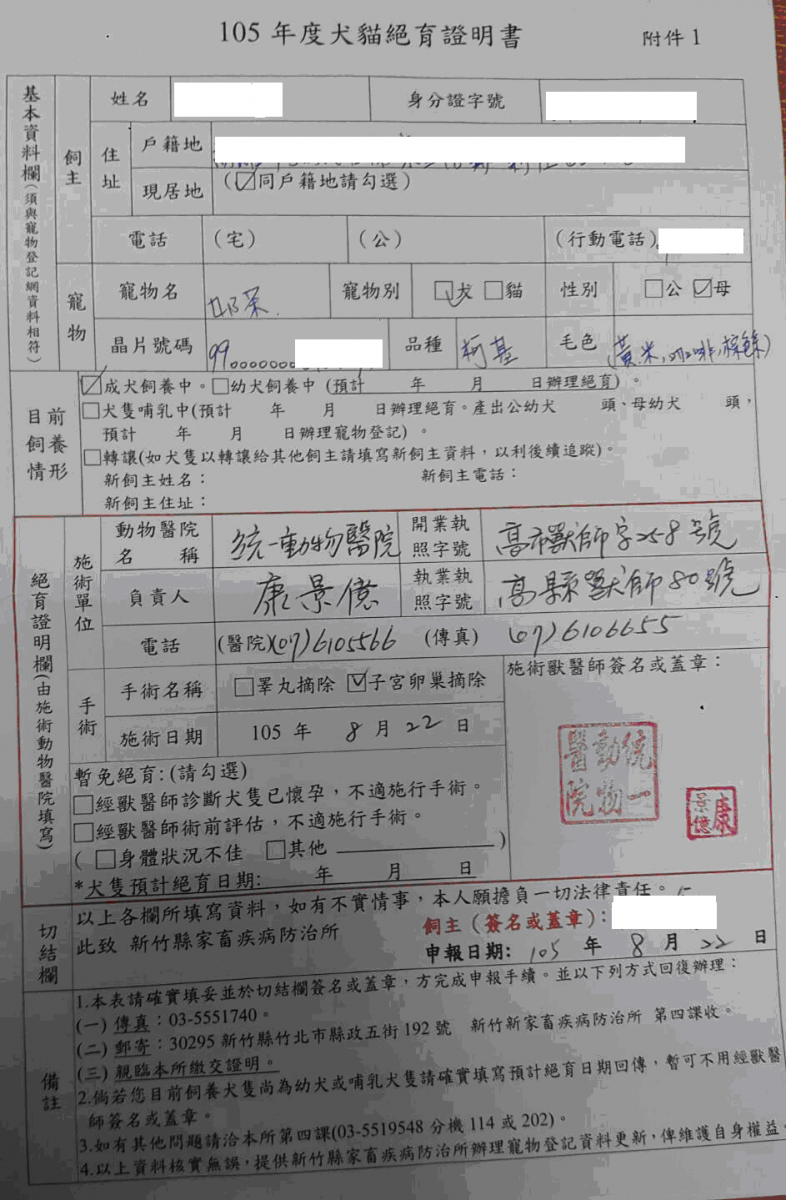 105 年度犬貓絕育證明書
附件 1
基本資料欄(須與寵物登記網資料相符)
飼主
姓名
身分證字號
住址
戶籍地
現居地
(☑同戶籍地請勾選)
電話 (宅) (公) (行動電話)
寵物
寵物名
寵物別 ☑犬 □貓
性別 □公 ☑母
晶片號碼 990000000
品種 柯基
毛色 (黃米,咖啡,棕餘)
目前飼養情形
☑成犬飼養中。□幼犬飼養中 (預計 年 月 日辦理絕育)。
□犬隻哺乳中(預計 年 月 日辦理絕育。產出公幼犬 頭、母幼犬 頭,
預計 年 月 日辦理寵物登記)。
□轉讓(如犬隻以轉讓給其他飼主請填寫新飼主資料,以利後續追蹤)。
新飼主姓名: 新飼主電話:
新飼主住址:
絕育證明欄(由施術動物醫院填寫)
施術單位
動物醫院名稱 統一動物醫院
開業執照字號 高市獸師字258號
負責人 康景億
執業執照字號 高縣獸師80號
電話 (醫院)(07)6105566 (傳真) (07)6106655
手術
手術名稱 □睪丸摘除 ☑子宮卵巢摘除
施術日期 105 年 8 月 22 日
施術獸醫師簽名或蓋章:
統一動物醫院
康景億
暫免絕育:(請勾選)
□經獸醫師診斷犬隻已懷孕,不適施行手術。
□經獸醫師術前評估,不適施行手術。
( □身體狀況不佳 □其他 )
*犬隻預計絕育日期: 年 月 日
切結欄
以上各欄所填寫資料,如有不實情事,本人願擔負一切法律責任。
此致 新竹縣家畜疾病防治所
飼主(簽名或蓋章):
申報日期: 105 年 8 月 22 日
備註
1.本表請確實填妥並於切結欄簽名或蓋章,方完成申報手續。並以下列方式回復辦理:
(一) 傳真:03-5551740。
(二) 郵寄:30295 新竹縣竹北市縣政五街 192 號 新竹新家畜疾病防治所 第四課收。
(三) 親臨本所繳交證明。
2.倘若您目前飼養犬隻尚為幼犬或哺乳犬隻請確實填寫預計絕育日期回傳,暫可不用經獸醫
師簽名或蓋章。
3.如有其他問題請洽本所第四課(03-5519548 分機 114 或 202)。
4.以上資料核實無誤,提供新竹縣家畜疾病防治所辦理寵物登記資料更新,俾維護自身權益。